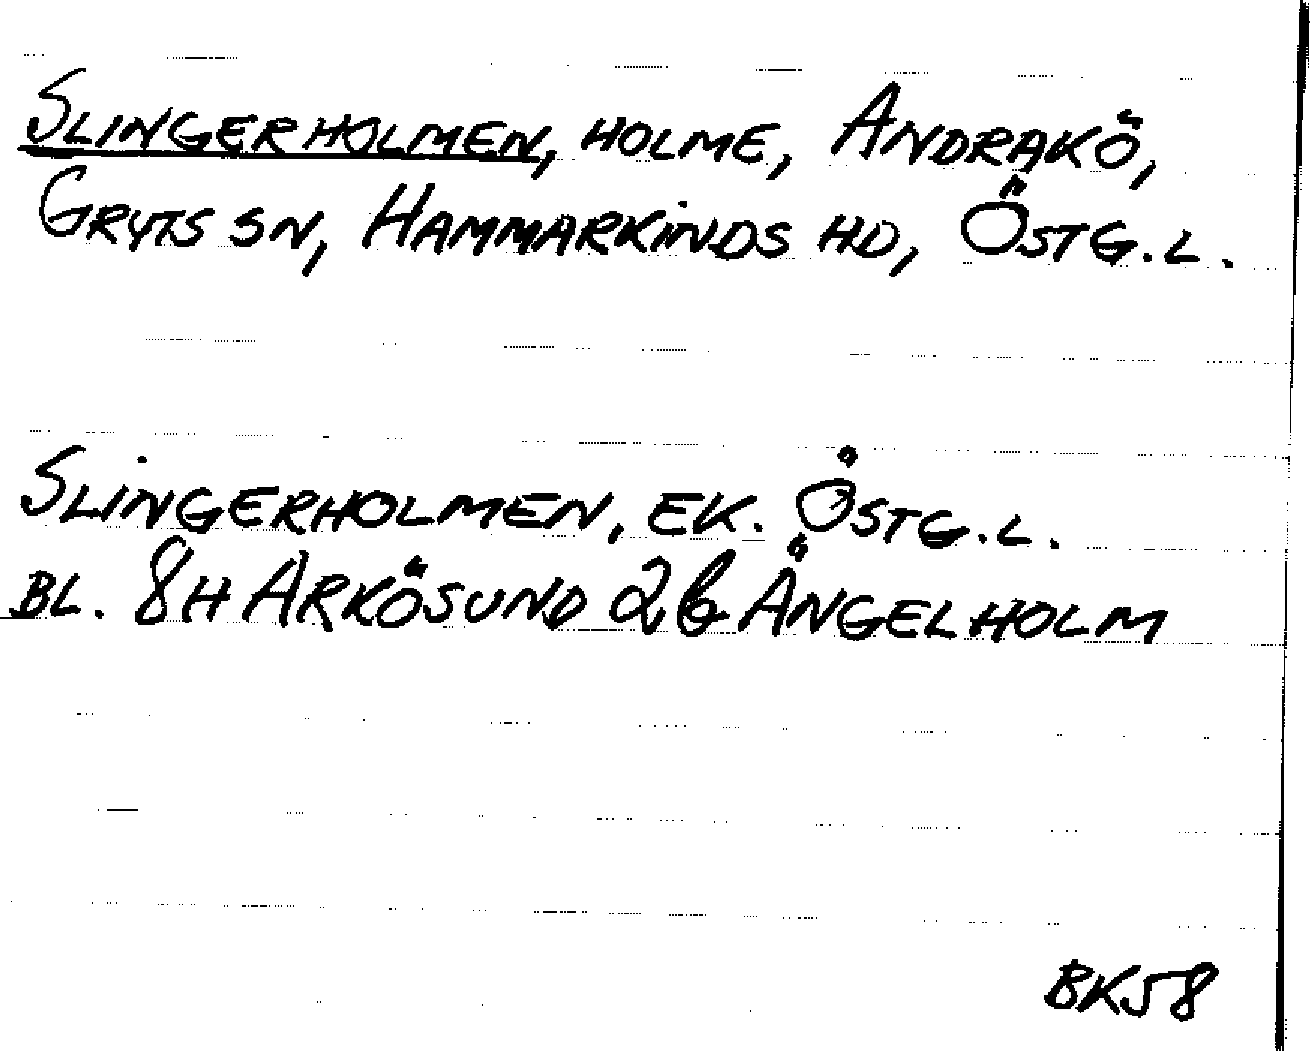 SLINGERHOLMEN, HOLME, ANDRAKÖ,
GRYTS SN, HAMMARKINDS HD, ÖSTG.L.
SLINGERHOLMEN, EK. ÖSTG.L.
BL. 8H ARKÖSUND 2b ÄNGELHOLM
BK58